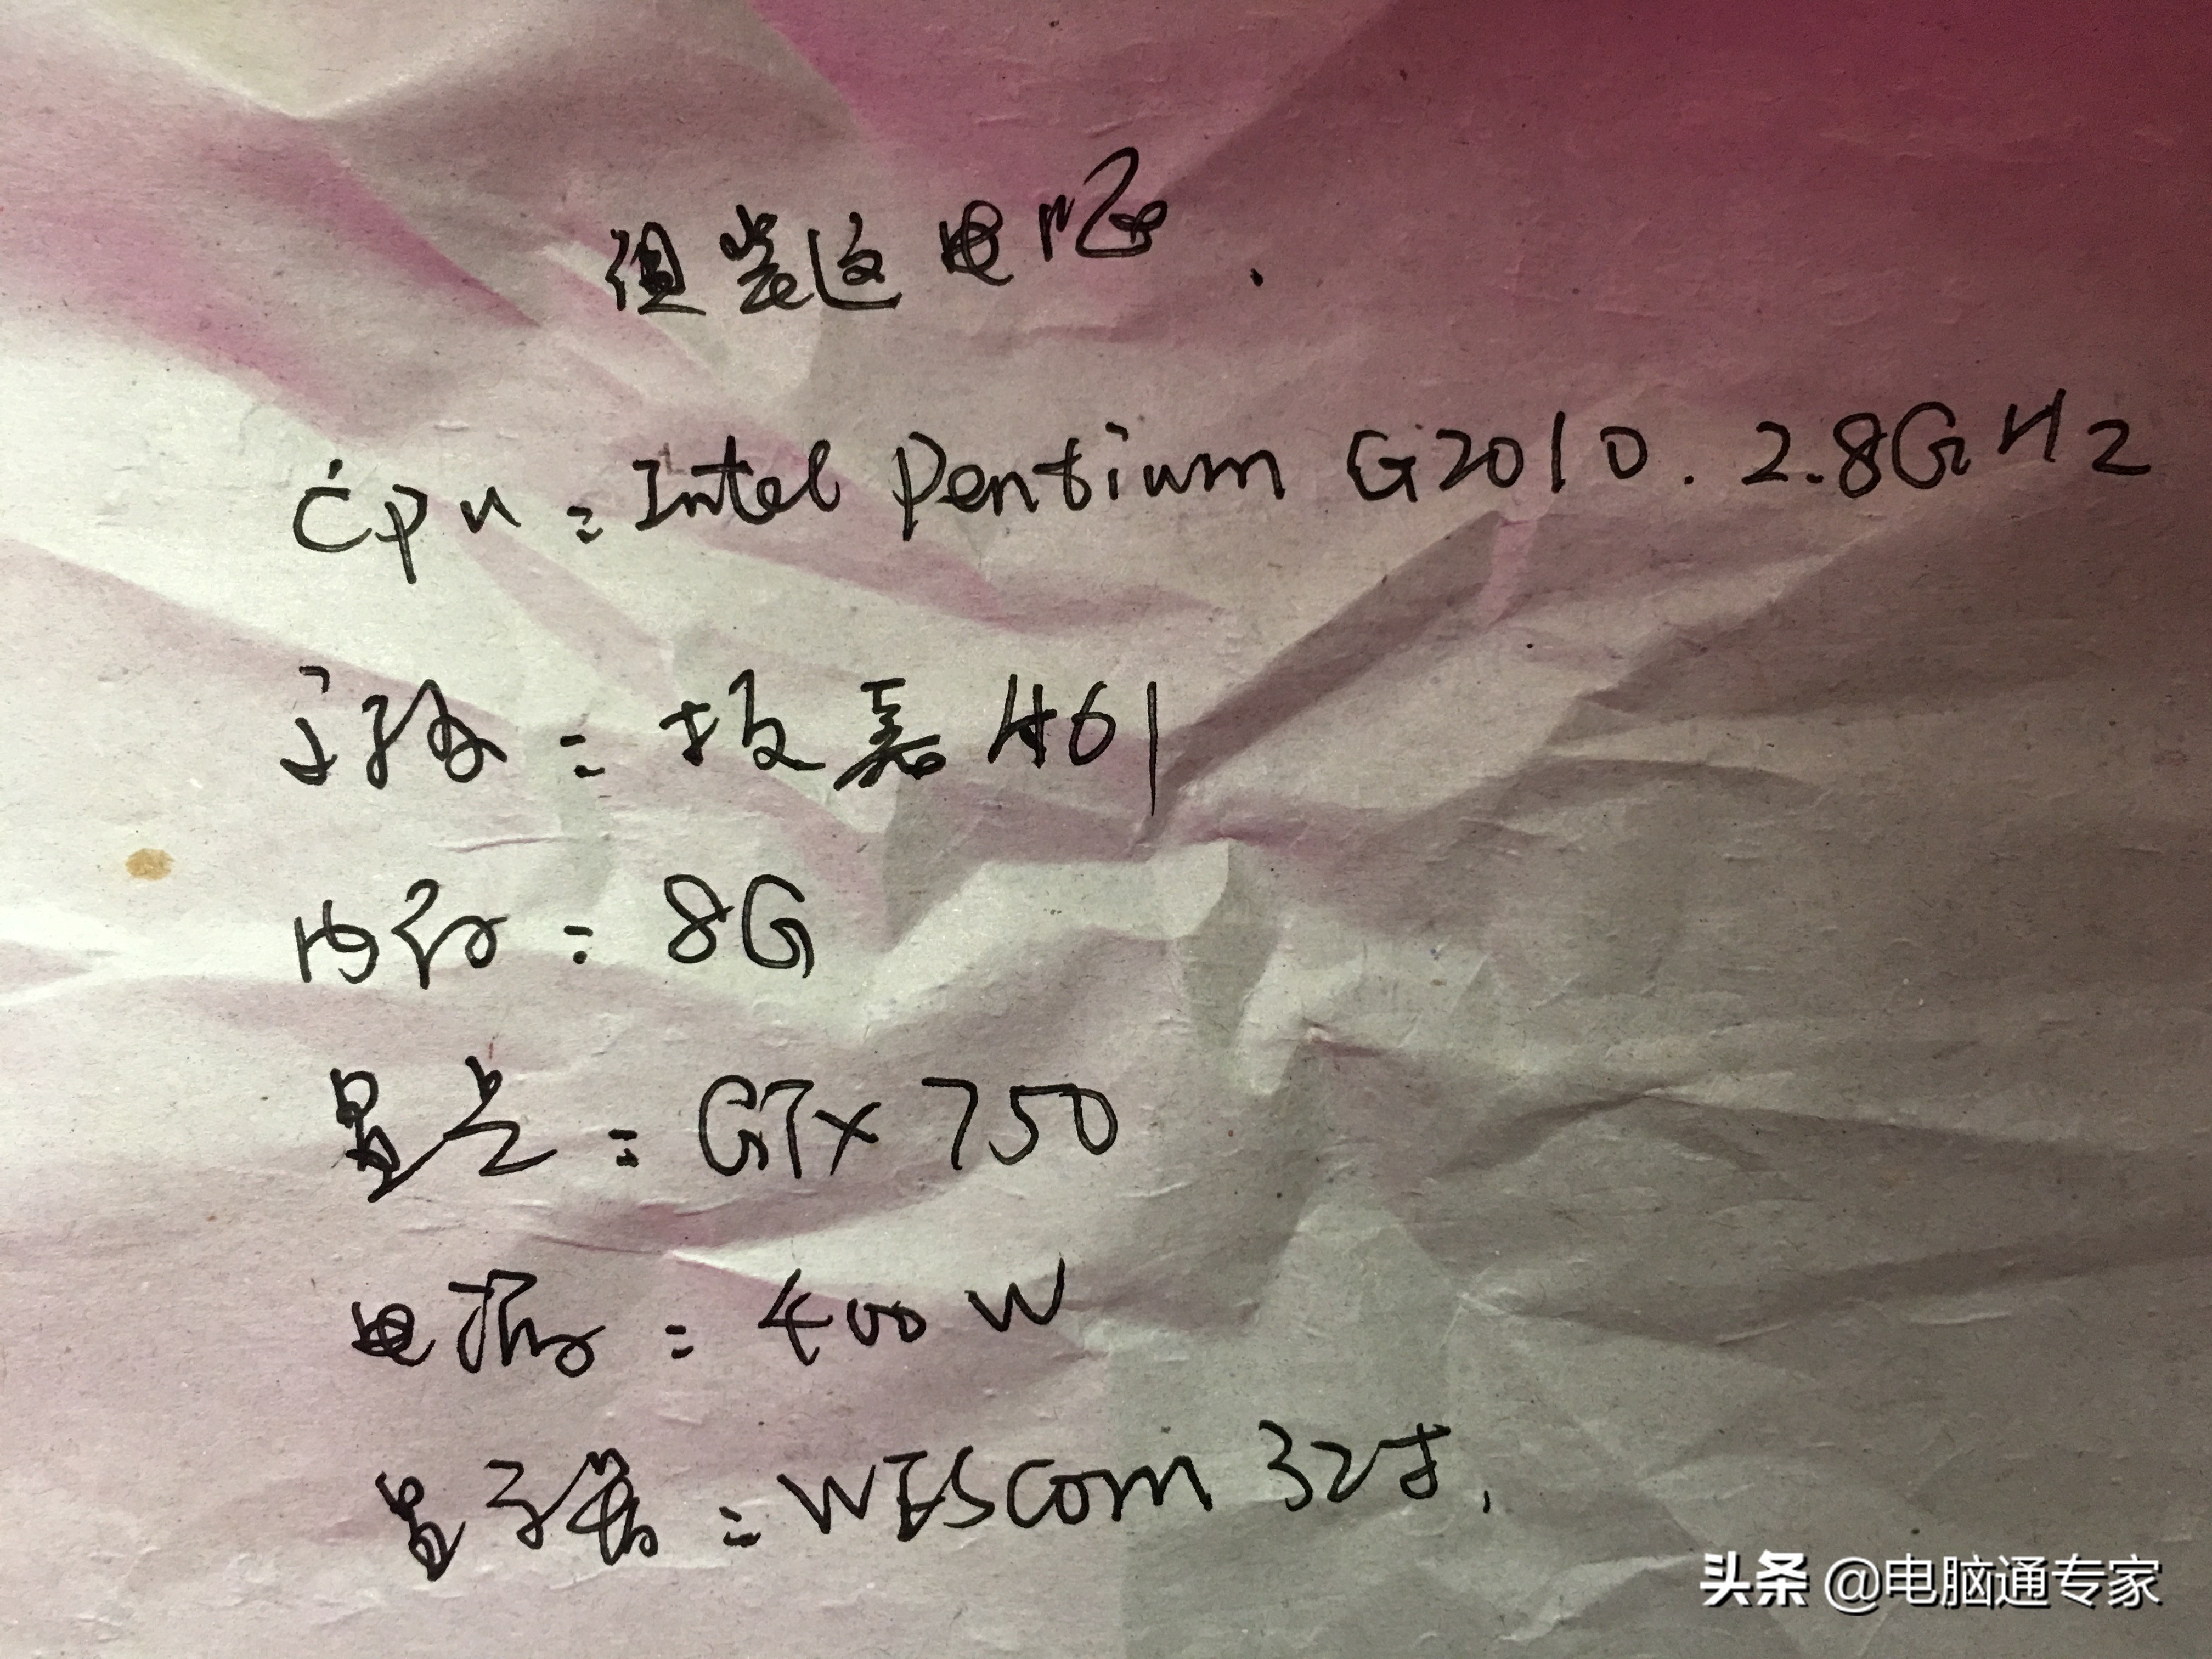 组装这电脑.
Cpu:Intel Pentium G2010.2.8GHz
主板:技嘉H61
内存:8G
显卡:GTX 750
电源:400W
显示器:WESCom 32寸.
头条 @电脑通专家